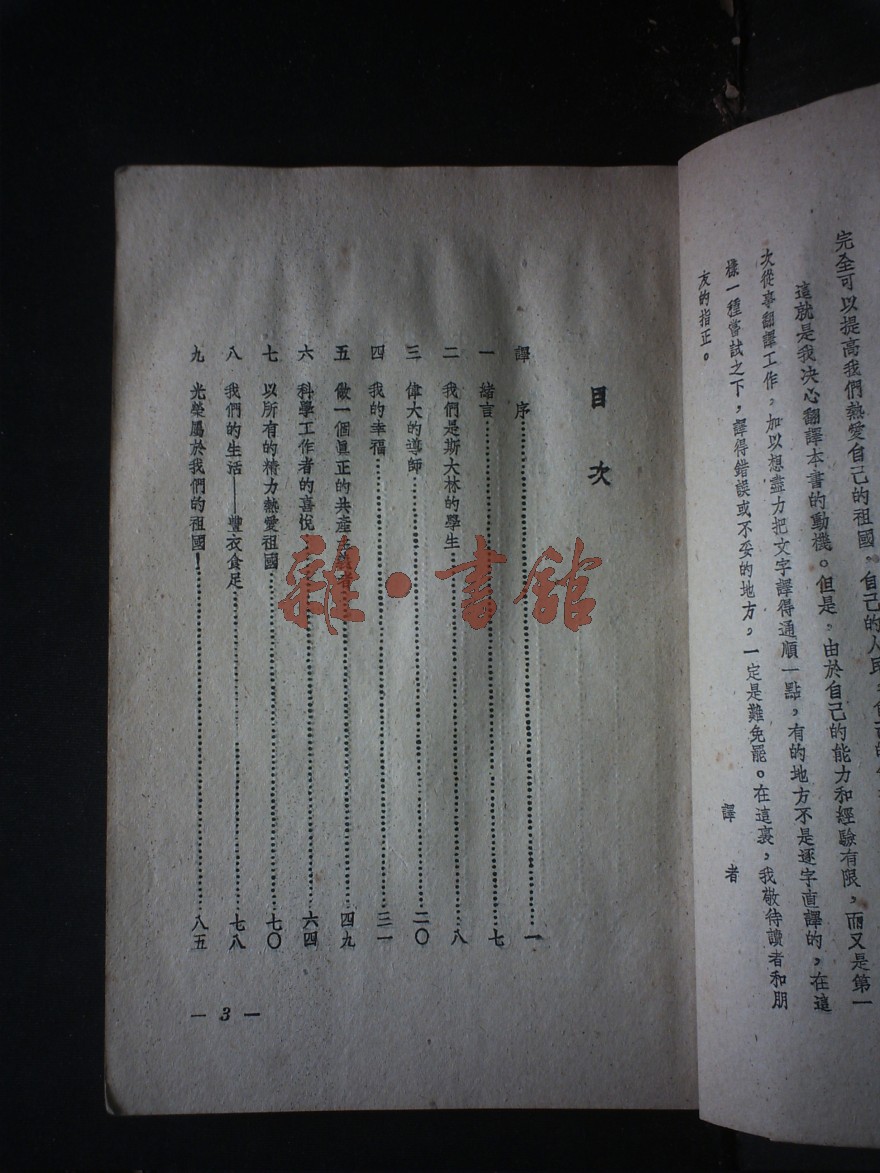 完全可以提高我們熱愛自己的祖國，自己的人民，
這就是我決心翻譯本書的動機。但是，由於自己的能力和經驗有限，而又是第一
次從事翻譯工作，加以想盡力把文字譯得通順一點，有的地方不是逐字直譯的，在這
樣一種嘗試之下，譯得錯誤或不妥的地方，一定是難免罷。在這裏，我敬待讀者和朋
友的指正。
譯者
目次
譯序……一
一 緒言……七
二 我們是斯大林的學生……八
三 偉大的導師……二〇
四 我的幸福……三一
五 做一個眞正的共產主義者……四九
六 科學工作者的喜悅……六四
七 以所有的精力熱愛祖國……七〇
八 我們的生活——豐衣食足……七八
九 光榮屬於我們的祖國！……八五
— 3 —
雜·書舘